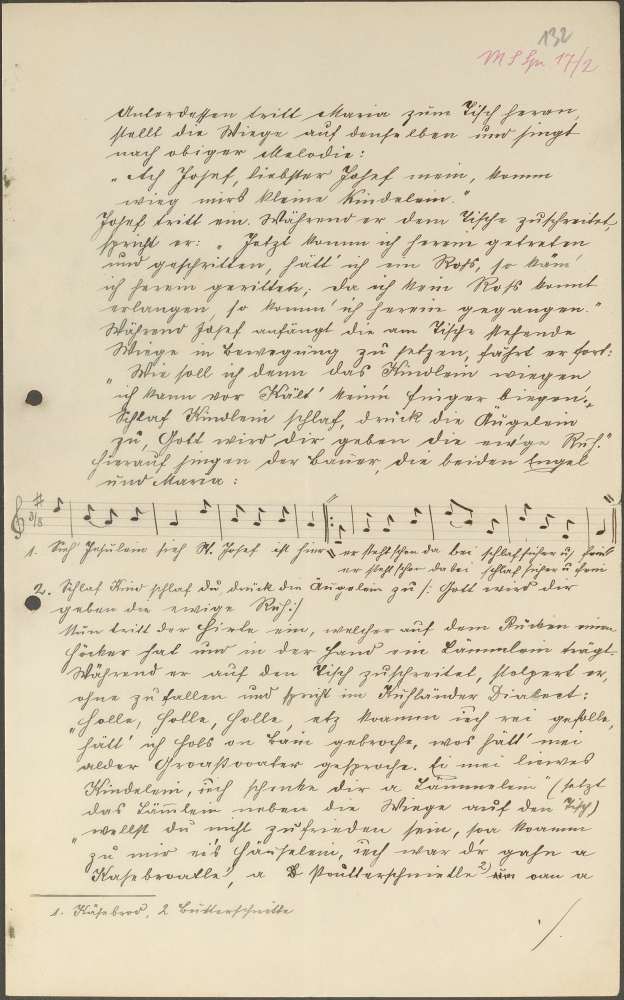 132
M S Spr 17/2
Unterdessen tritt Maria zum Tisch heran,
stellt die Wiege auf denselben und singt
nach obiger Melodie:
„Ach Josef, liebster Josef mein, komm
wieg mirs kleine Kindelein."
Josef tritt ein. Während er dem Tische zuschreitet,
spricht er: „Jetzt komm ich herein getreten
und geschritten, hätt' ich ein Roß, so käm'
ich herein geritten; da ich kein Roß konnt
erlangen, so komm' ich herein gegangen."
Während Josef anfängt die am Tische stehende
Wiege in Bewegung zu setzen, fährt er fort:
„Wie soll ich denn das Kindlein wiegen,
ich kann vor Kält' keinen Finger biegen.
Schlaf Kindlein schlaf, drück die Äugelein
zu, Gott wird dir geben die ew'ge Ruh."
Hierauf singen der Bauer, die beiden Engel
und Maria:
3/8
1. Sieh Jesulein sieh St. Josef ist hier er steht schon da bei
er steht schon da bei
2. Schlaf Kind schlaf du drück die Äugelein zu /: Gott wird dir
geben die ewige Ruh :/
Nun tritt der Hirte ein, welcher auf dem Rücken einen
Höcker hat und in der Hand ein Lämmlein trägt.
Während er auf den Tisch zuschreitet, stolpert er,
ohne zu fallen und spricht im Kuhländer Dialect:
„Holla, holla, holla, etz koamm iech rei gefolle,
hätt' ich Hols on Bain gebroche, wos hätt' mei
alder Groaßvoater gesproche. Ei mei liewes
Kindelein, iech schenke dir a Lämmelein" (setzt
das Lämmlein neben die Wiege auf den Tisch)
„wellst du nicht zufrieden sein, soa koamm
zu mir ei's Häuselein, iech war dr gahn a
Kasebroatle, a Poutterschnietle 2) oan a
1. Käsebrod, 2. Butterschnitte
./.